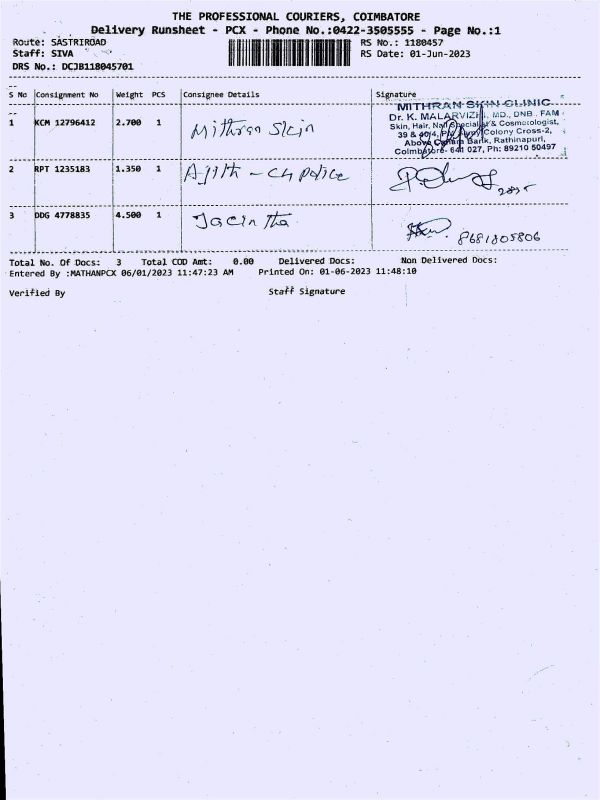 THE PROFESSIONAL COURIERS, COIMBATORE
Delivery Runsheet - PCX - Phone No.:0422-3505555 - Page No.:1
Route: SASTRIROAD
Staff: SIVA
DRS No.: DCJB118045701
RS No.: 1180457
RS Date: 01-Jun-2023
S No Consignment No Weight PCS Consignee Details Signature
1 KCM 12796412 2.700 1 Mithran Skin
MITHRAN SKIN CLINIC
Dr. K. MALARVIZHI, MD., DNB., FAM
Skin, Hair, Nail Specialist & Cosmetologist,
39 & 40/4, Colony Cross-2,
Above Canara Bank, Rathinapuri,
Coimbatore- 641 027, Ph: 89210 50497
2 RPT 1235183 1.350 1 Ajith - CH Police
3 DDG 4778835 4.500 1 Jacintha
8681805806
Total No. Of Docs: 3 Total COD Amt: 0.00 Delivered Docs: Non Delivered Docs:
Entered By :MATHANPCX 06/01/2023 11:47:23 AM Printed On: 01-06-2023 11:48:10
Verified By Staff Signature